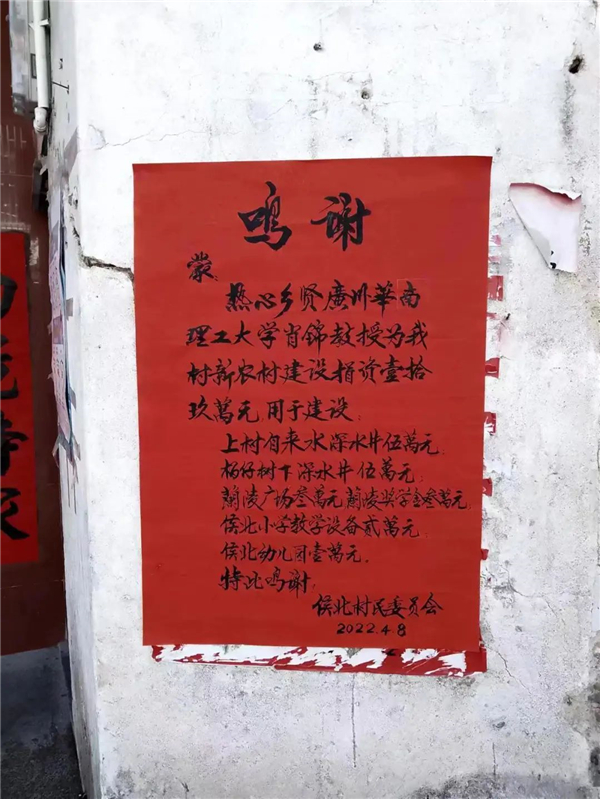 鸣谢
蒙
热心乡贤廣州華南
理工大学肖锦教授为我
村新农村建设捐资壹拾
玖萬元,用于建设:
上村自来水深水井伍萬元,
杨仔树下深水井伍萬元,
蘭陵广场叁萬元,蘭陵奖学金叁萬元,
侯北小学教学设备贰萬元,
侯北幼儿园壹萬元。
特此鸣谢。
侯北村民委员会
2022.4.8